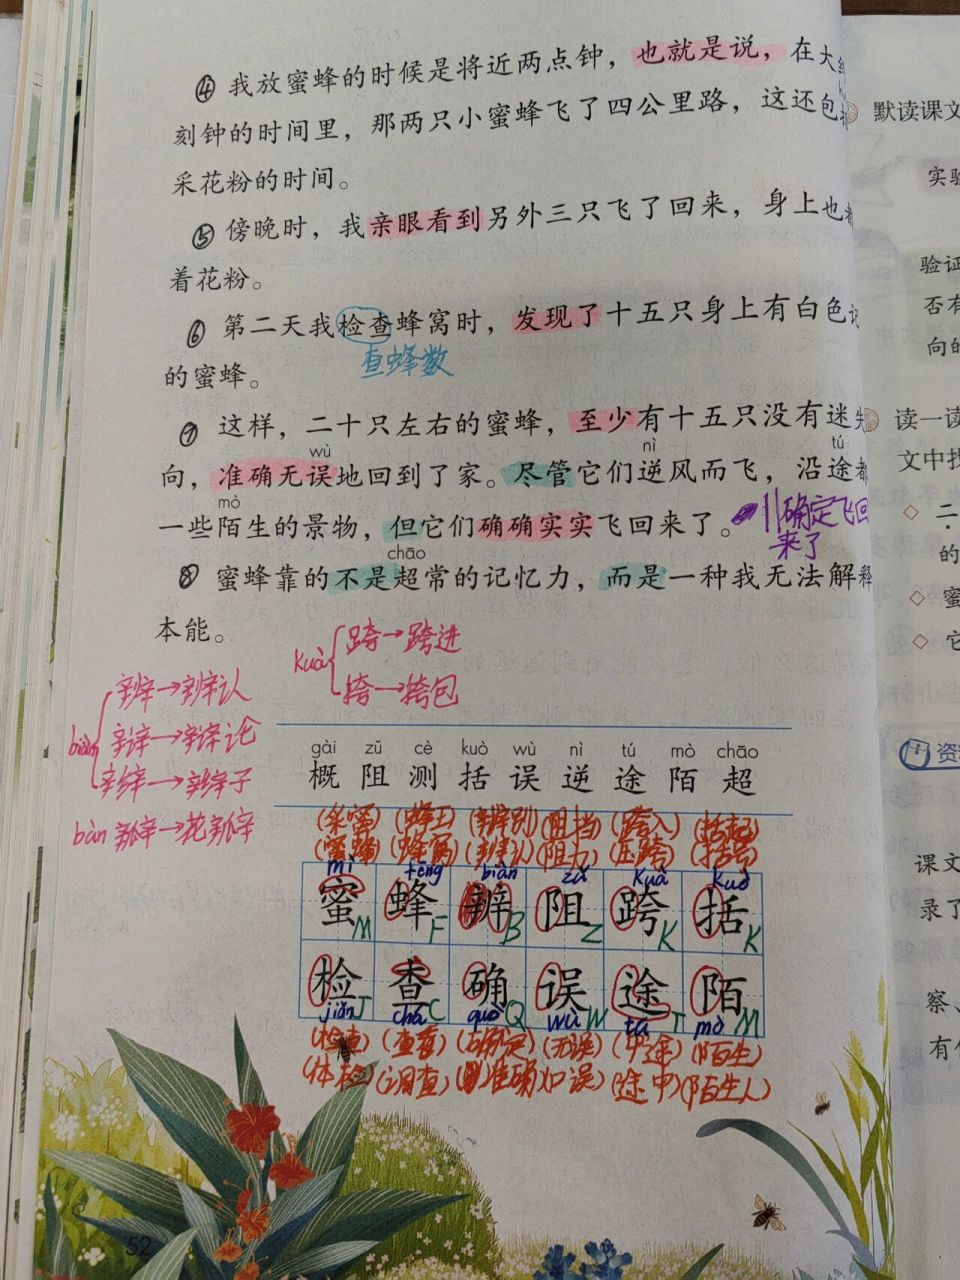 ④ 我放蜜蜂的时候是将近两点钟，也就是说，在大
刻钟的时间里，那两只小蜜蜂飞了四公里路，这还包括
采花粉的时间。
⑤ 傍晚时，我亲眼看到另外三只飞了回来，身上也都
着花粉。
⑥ 第二天我检查蜂窝时，发现了十五只身上有白色记
查蜂数
的蜜蜂。
⑦ 这样，二十只左右的蜜蜂，至少有十五只没有迷失
wù nì tú
向，准确无误地回到了家。尽管它们逆风而飞，沿途都
mò
一些陌生的景物，但它们确确实实飞回来了。
确定飞回
来了
chāo
⑧ 蜜蜂靠的不是超常的记忆力，而是一种我无法解释
本能。
kuà
跨→跨进
挎→挎包
biàn
辨→辨认
辩→辩论
辫→辫子
bàn 瓣→花瓣
gài zǔ cè kuò wù nì tú mò chāo
概 阻 测 括 误 逆 途 陌 超
(采蜜) (蜂王) (辨别) (阻挡) (跨入) (括起)
(蜜蜂) (蜂窝) (辨认) (阻力) (括号)
mì fēng biàn zǔ kuà kuò
蜜 蜂 辨 阻 跨 括
M F B Z K K
检 查 确 误 途 陌
J C Q W T M
jiǎn chá què wù tú mò
(检查) (查看) (确定) (无误) (中途) (陌生)
(体检) (调查) (准确) (途中) (陌生人)
52
默读课文
实验
验证
否有
向的
读一读
文中找
◇ 二
的
◇ 蜜
◇ 它
资料
课文
录了
察、
有什